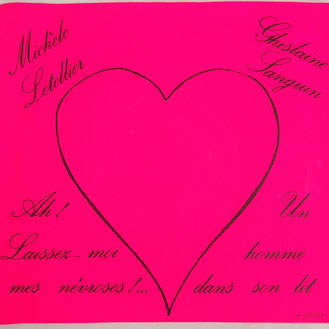 Michèle
Letellier
Ghislaine
Sanguin
Ah!
Laissez-moi
mes névroses!...
Un
homme
dans son lit